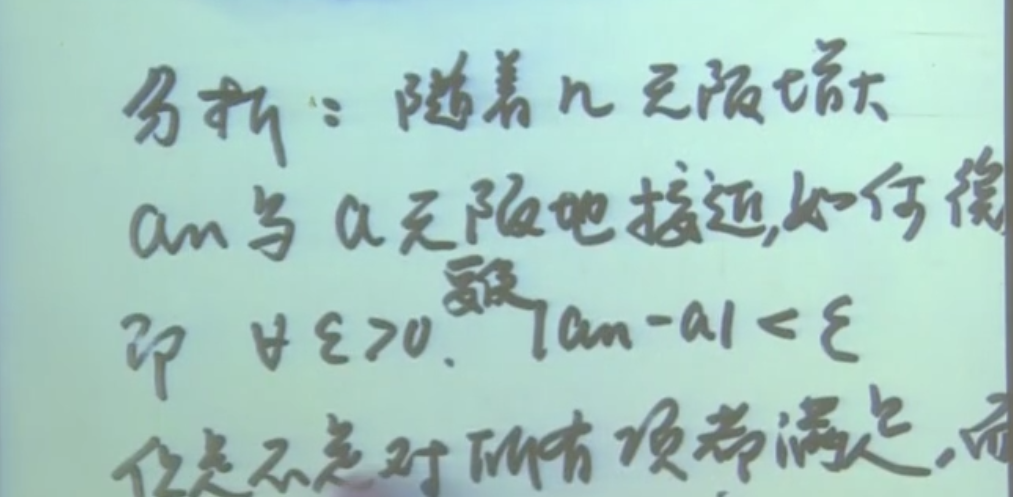 分析：随着n无限增大
an与a无限地接近,如何
即 ∀ε>0. 要使|an-a|<ε
但是不是对所有项都满足,而